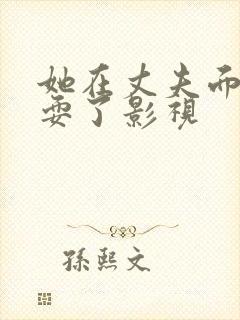 她在丈夫而
耍了影視
孫熙文